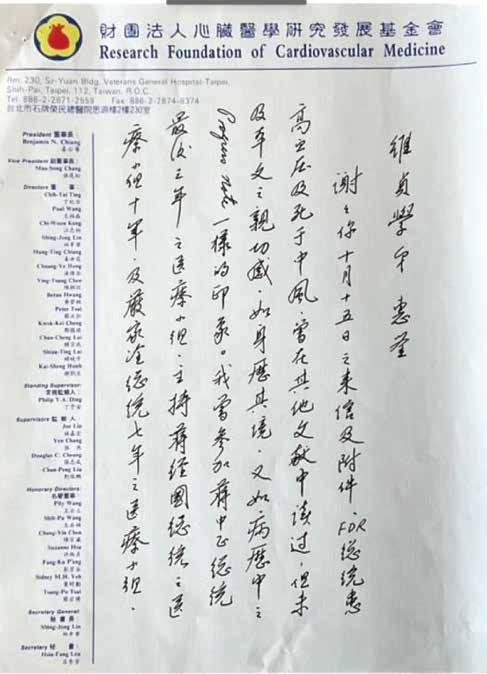 財團法人心臟醫學研究發展基金會
Research Foundation of Cardiovascular Medicine
Rm. 230, Sz-Yuan Bldg, Veterans General Hospital-Taipei,
Shih-Pai, Taipei, 112, Taiwan, R.O.C.
Tel: 886-2-2871-2559 Fax: 886-2-2874-8374
台北市石牌榮民總醫院思源樓2樓230室
President 董事長:
Benjamin N. Chiang
姜必寧
Vice President 副董事長:
Mau-Song Chang
張茂松
Directors 董 事:
Chih-Tai Ting
Paul Wang
Chi-Woon Kong
江志桓
Shing-Jong Lin
林幸榮
Hung-Ting Chiang
Chuang-Ye Hong
Ying-Tsung Chen
Betau Hwang
Peter Tsai
Kwok-Kei Cheng
Chun-Cheng Lai
Shiau-Ting Lai
Kai-Sheng Hsieh
Standing Supervisor:
常務監察人:
Philip Y.A. Ding
丁予安
Supervisors 監 察 人:
Joe Liu
Yen Chang
Douglas C. Cheung
Chun-Peng Liu
劉俊鵬
Honorary Directors:
名譽董事:
Pily Wang
Shih-Pu Wang
Cheng-Yin Chen
Suzanne Hsu
Fang-Ku P'ing
Sidney M.H. Yeh
Tsang-Po Tsai
Secretary General:
秘 書 長:
Shing-Jong Lin
林幸榮
Secretary 秘 書:
Hsiu-Fang Leu
維貞學弟惠鑒
謝々你十月十五日之來信及附件。FDR總統患
高血壓及死于中風。曾在其他文獻中談過,但未
及本文之親切感。如身歷其境。又如病歷中之
Progress note一樣的印象。我曾參加蔣中正總統
最後三年之医療小組。主持蔣經國總統之医
療小組十年。及嚴家淦總統七年之医療小組。